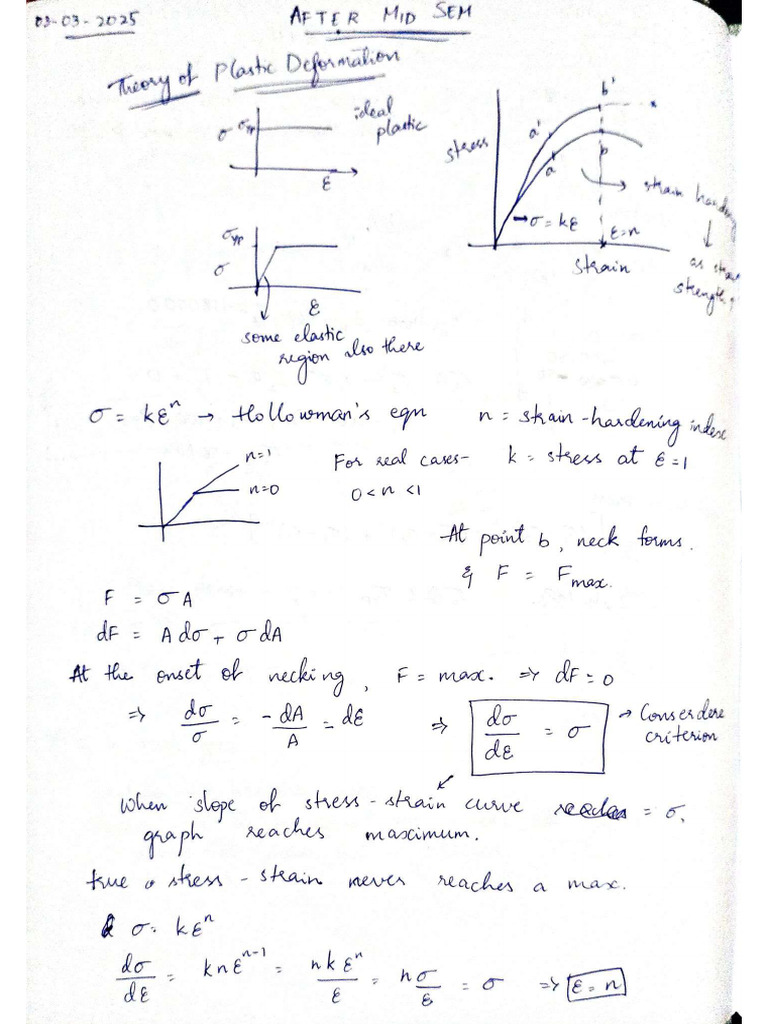 03-03-2025
AFTER MID SEM
Theory of Plastic Deformation
σ σyp
ideal
plastic
ε
stress
a'
b'
a
b
→ σ = kε
ε=n
strain
strain hardening
σyp
σ
ε
some elastic
region also there
σ = kεⁿ → Hollowman's eqn n = strain-hardening index
n=1
n=0
For real cases- k = stress at ε=1
0<n<1
At point b, neck forms.
& F = Fmax.
F = σA
dF = Adσ + σdA
At the onset of necking, F = max. ⇒ dF=0
⇒ dσ/σ = -dA/A = dε ⇒ dσ/dε = σ → Conserdere
criterion
When slope of stress-strain curve = σ,
graph reaches maximum.
true stress-strain never reaches a max.
σ = kεⁿ
dσ/dε = knεⁿ⁻¹ = nkεⁿ/ε = nσ/ε = σ ⇒ ε = n